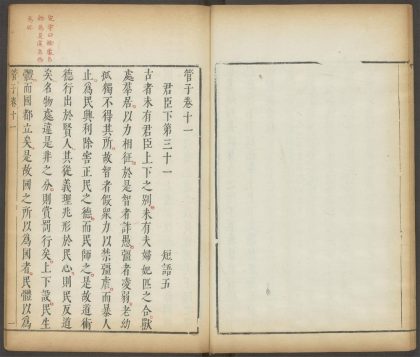 管子卷十一
君臣下第三十一 短語五
古者未有君臣上下之別未有夫婦妃匹之合獸
處羣居以力相征於是智者詐愚彊者凌弱老幼
孤獨不得其所故智者假衆力以禁彊虐而暴人
止爲民興利除害正民之德而民師之是故道術
德行出於賢人其從義理兆形於民心則民反道
矣名物處違是非之分則賞罰行矣上下設民生
體而國都立矣是故國之所以爲國者民體以爲
管子卷十一 一